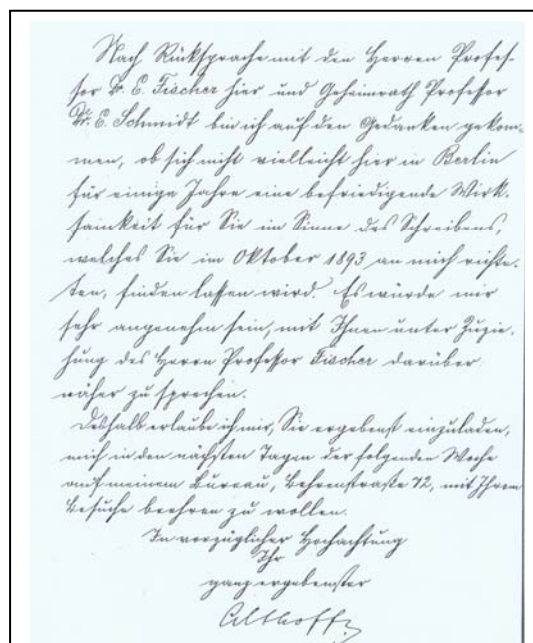 Nach Rücksprache mit den Herren Profes-
sor Dr. E. Fischer hier und Geheimrath Professor
Dr. E. Schmidt bin ich auf den Gedanken gekom-
men, ob sich nicht vielleicht hier in Berlin
für einige Jahre eine befriedigende Wirk-
samkeit für Sie im Sinne des Schreibens,
welches Sie im Oktober 1893 an mich richte-
ten, finden lassen wird. Es würde mir
sehr angenehm sein, mit Ihnen unter Zuzie-
hung des Herrn Professor Fischer darüber
näher zu sprechen.
Deshalb erlaube ich mir, Sie ergebenst einzuladen,
mich in den nächsten Tagen der folgenden Woche
auf meinem Bureau, Behrenstraße 72, mit Ihrem
Besuche beehren zu wollen.
In vorzüglicher Hochachtung
Ihr
ganz ergebenster
Althoff